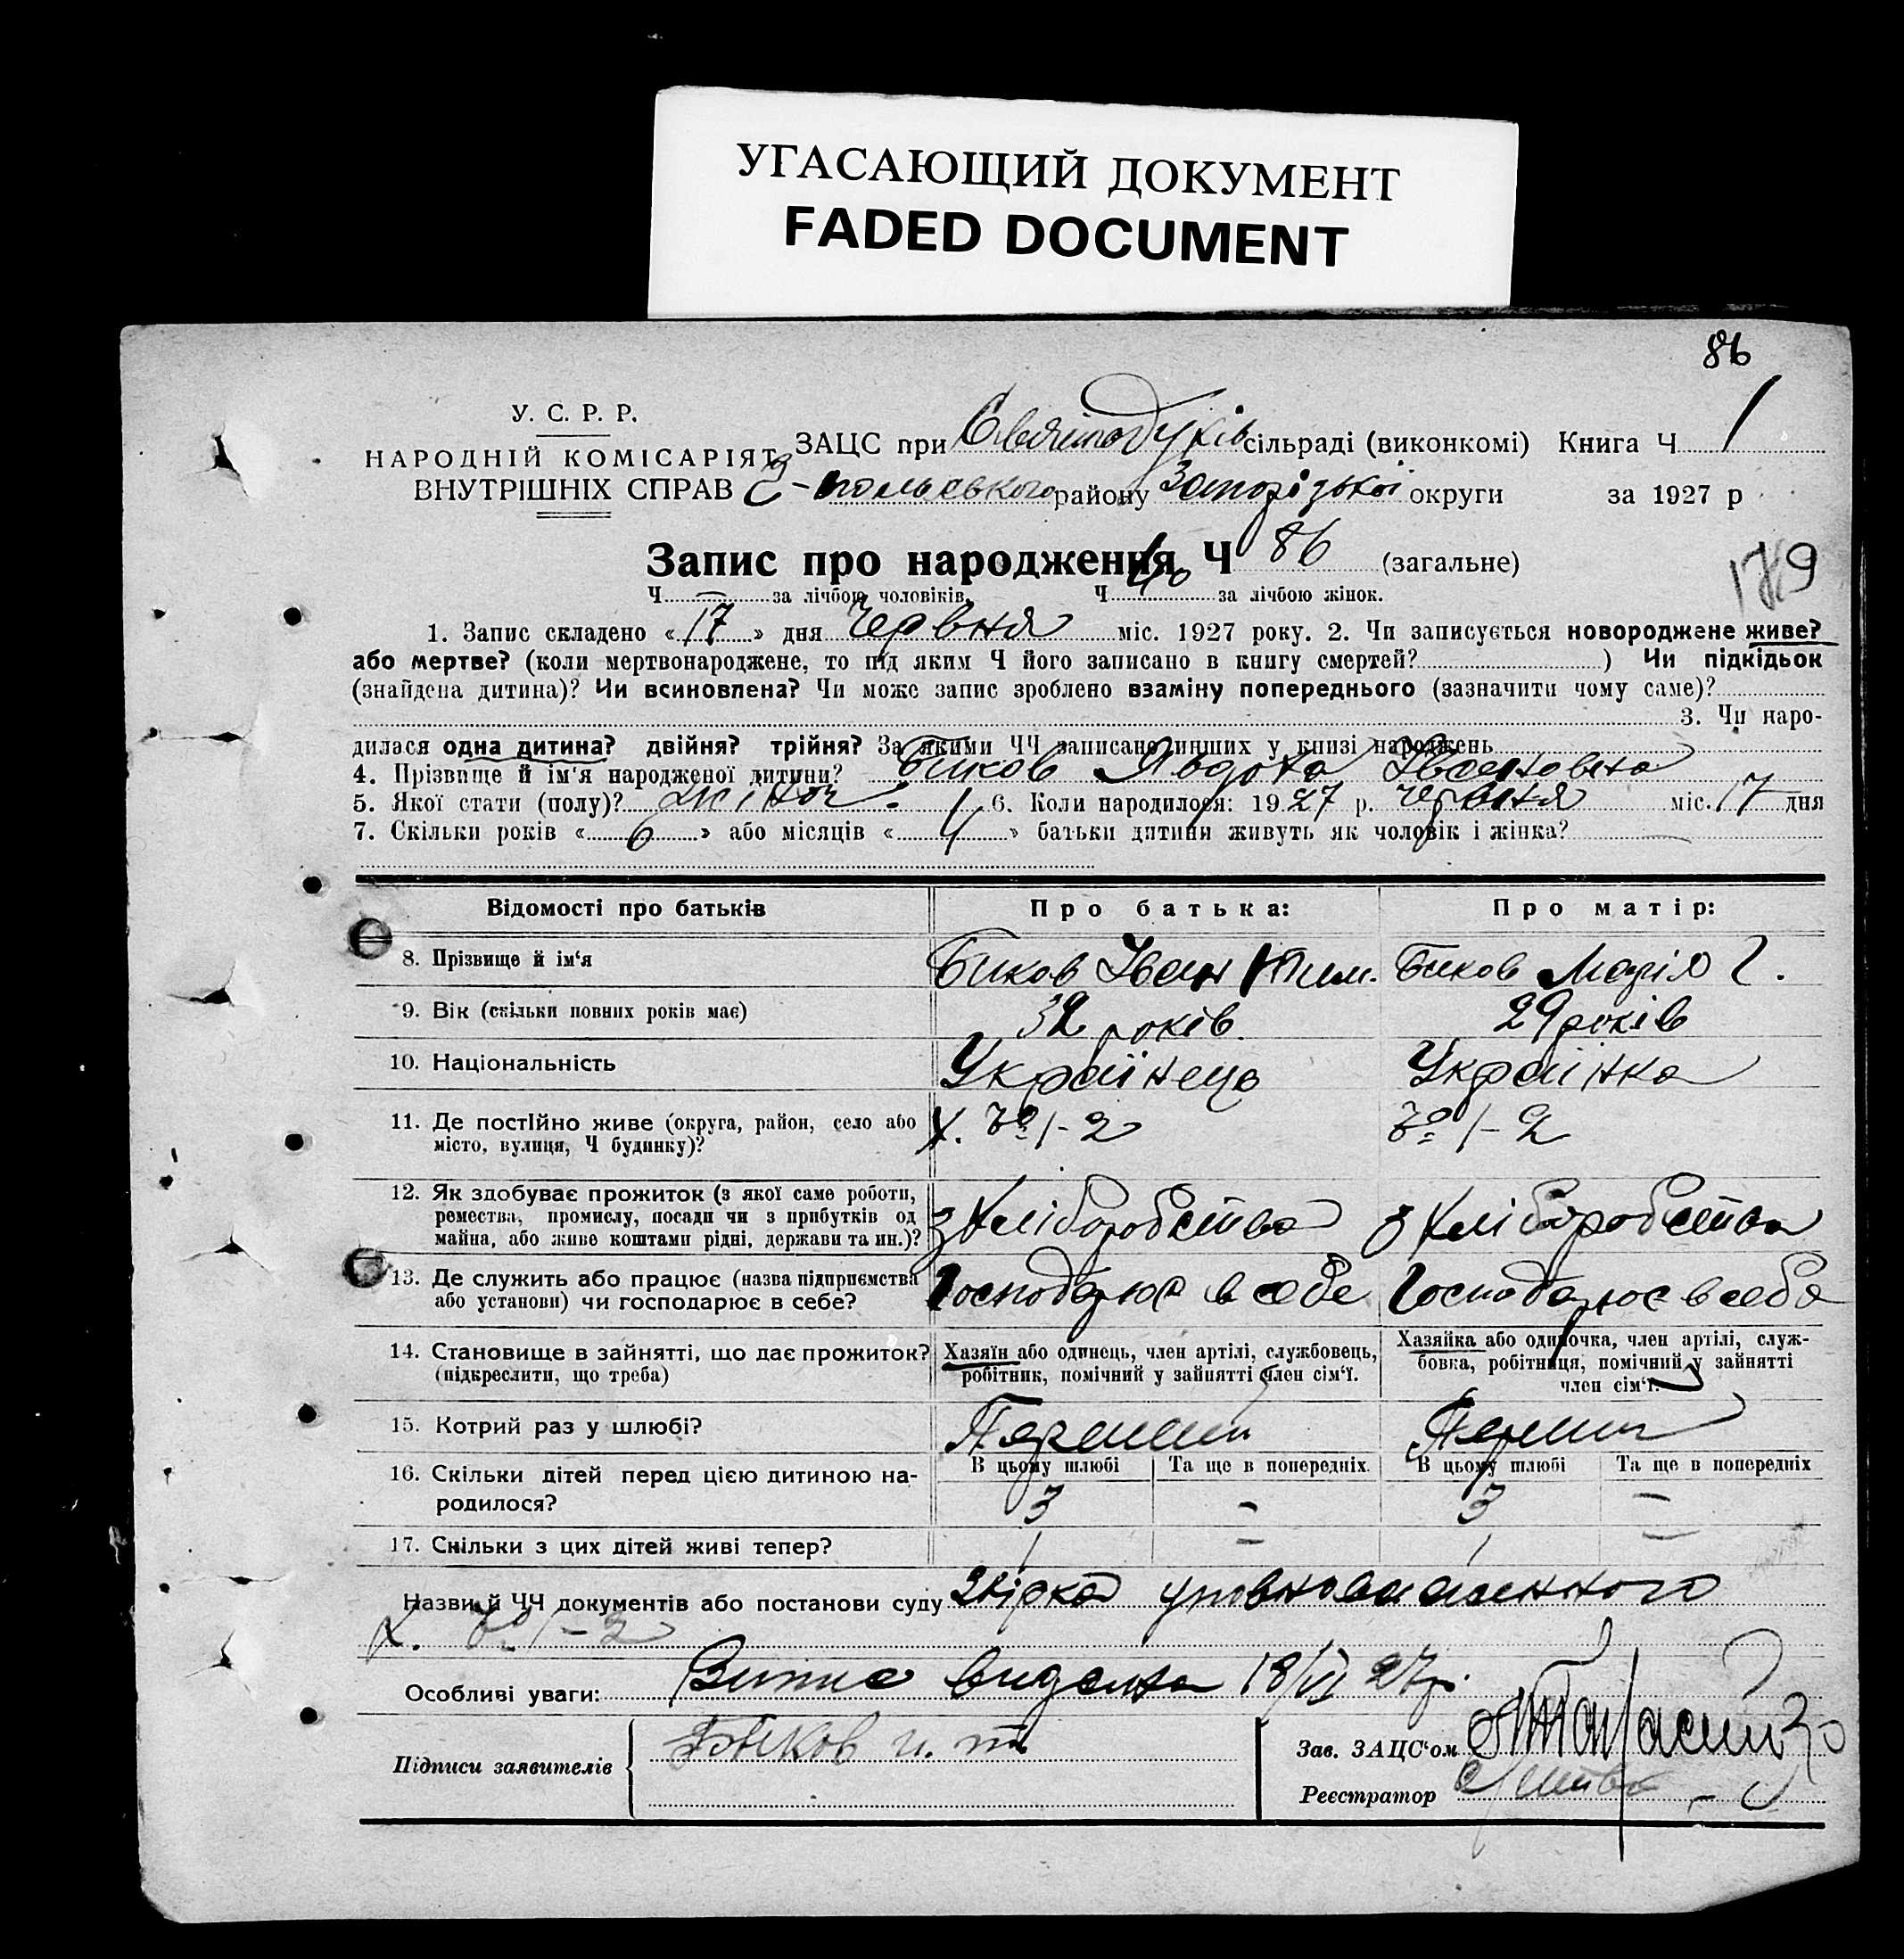 УГАСАЮЩИЙ ДОКУМЕНТ
FADED DOCUMENT
86
У. С. Р. Р.
НАРОДНІЙ КОМІСАРІЯТ
ВНУТРІШНІХ СПРАВ
ЗАЦС при Святодухів сільраді (виконкомі) Книга Ч 1
району Запорізької округи за 1927 р
Запис про народження Ч 86 (загальне)
179
Ч — за лічбою чоловіків. Ч 40 за лічбою жінок.
1. Запис складено «17» дня Червня міс. 1927 року. 2. Чи записується новороджене живе?
або мертве? (коли мертвонароджене, то під яким Ч його записано в книгу смертей? ) Чи підкідьок
(знайдена дитина)? Чи всиновлена? Чи може запис зроблено взаміну попереднього (зазначити чому саме)?
3. Чи наро-
дилася одна дитина? двійня? трійня? За якими ЧЧ записано инших у книзі народжень
4. Прізвище й ім'я народженої дитини? Биков Явдоха Івановна
5. Якої стати (полу)? жіноч. 6. Коли народилося: 1927 р. червня міс. 17 дня
7. Скільки років «6» або місяців «4» батьки дитини живуть як чоловік і жінка? —
Відомості про батьків Про батька: Про матір:
8. Прізвище й ім'я Биков Іван Тим. Биков Марія Г.
9. Вік (скільки повних років має) 32 років 29 років
10. Національність Українець Українка
11. Де постійно живе (округа, район, село або
місто, вулиця, Ч будинку)? х. № 1-2 № 1-2
12. Як здобуває прожиток (з якої саме роботи,
ремества, промислу, посади чи з прибутків од
майна, або живе коштами рідні, держави та ин.)? З хліборобства З хліборобства
13. Де служить або працює (назва підприємства
або установи) чи господарює в себе? Господарює в себе Господарює в себе
14. Становище в зайнятті, що дає прожиток?
(підкреслити, що треба)
Хазяїн або одинець, член артілі, службовець,
робітник, помічний у зайнятті член сім'ї.
Хазяйка або одиночка, член артілі, служ-
бовка, робітниця, помічний у зайнятті
член сім'ї.
15. Котрий раз у шлюбі? Перший Перший
16. Скільки дітей перед цією дитиною на-
родилося?
В цьому шлюбі Та ще в попередніх В цьому шлюбі Та ще в попередніх
3 — 3 —
17. Скільки з цих дітей живі тепер? 1 — 1 —
Назви й ЧЧ документів або постанови суду Звірка уповноваженного
х. № 1-2
Особливі уваги: Випис видана 18/VI 27р.
Підписи заявителів Быков И. Т.
Зав. ЗАЦС'ом
Реєстратор